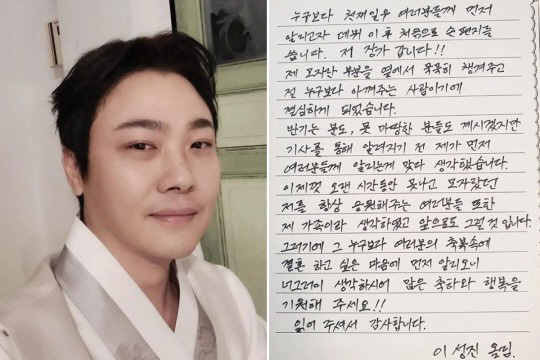 누구보다 천재일우 여러분들께 먼저
알리고자 데뷔 이후 처음으로 손편지를
씁니다. 저 장가 갑니다!!
제 모자란 부분을 옆에서 묵묵히 챙겨주고
전 누구보다 아껴주는 사람이기에
결심하게 되었습니다.
반기는 분도, 못 마땅한 분들도 계시겠지만
기사를 통해 알려지기 전 제가 먼저
여러분들께 알리는게 맞다 생각했습니다.
이제껏 오랜 시간동안 못나고 모자랐던
저를 항상 응원해주는 여러분들 또한
제 가족이라 생각하였고 앞으로도 그럴 것 입니다.
그러기에 그 누구보다 여러분의 축복속에
결혼 하고 싶은 마음에 먼저 알리오니
너그러이 생각하시어 많은 축하와 행복을
기원해 주세요!!
읽어 주셔서 감사합니다.
이 성진 올림.